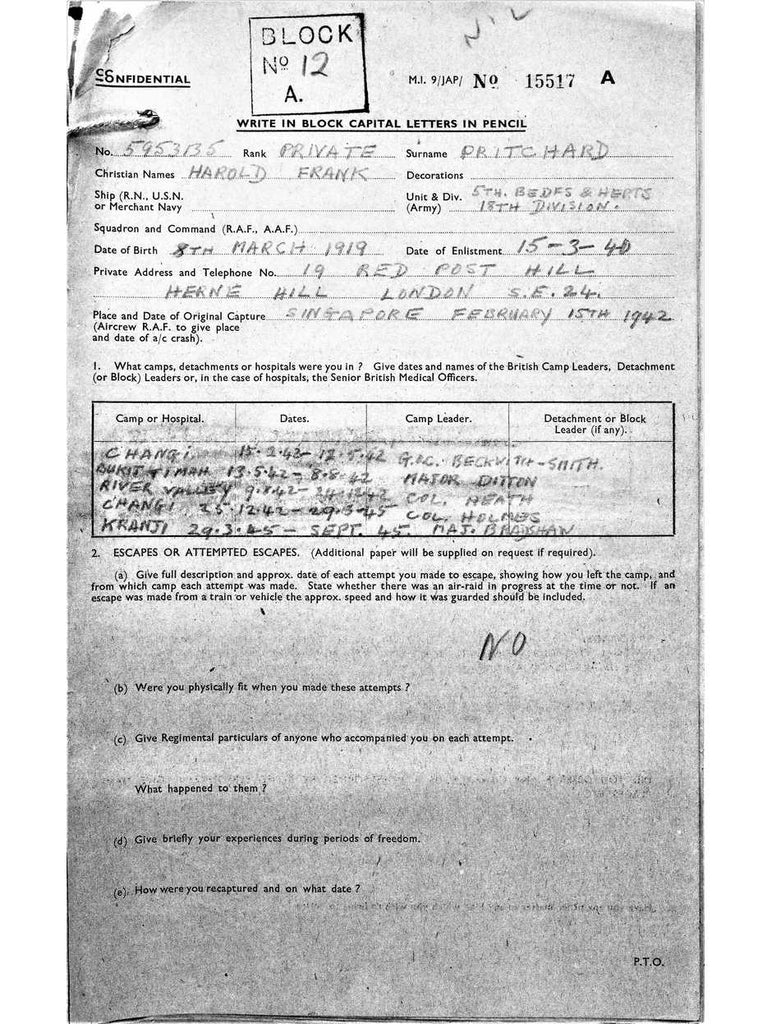 NIL
BLOCK
Nº 12
A.
CONFIDENTIAL
M.I. 9/JAP/ Nº 15517 A
WRITE IN BLOCK CAPITAL LETTERS IN PENCIL
No. 5953135 Rank PRIVATE Surname PRITCHARD
Christian Names HAROLD FRANK Decorations
Ship (R.N., U.S.N. or Merchant Navy
Unit & Div. (Army) 5TH. BEDFS & HERTS 18TH DIVISION.
Squadron and Command (R.A.F., A.A.F.)
Date of Birth 8TH MARCH 1919 Date of Enlistment 15-3-40
Private Address and Telephone No. 19 RED POST HILL
HERNE HILL LONDON S.E.24.
Place and Date of Original Capture SINGAPORE FEBRUARY 15TH 1942
(Aircrew R.A.F. to give place
and date of a/c crash).
1. What camps, detachments or hospitals were you in ? Give dates and names of the British Camp Leaders, Detachment
(or Block) Leaders or, in the case of hospitals, the Senior British Medical Officers.
Camp or Hospital. Dates. Camp Leader. Detachment or Block Leader (if any).
CHANGI 15.2.42 - 12.5.42 G.O.C. BECKWITH-SMITH.
BUKIT TIMAH 13.5.42 - 8.8.42 MAJOR DITTON
RIVER VALLEY 9.8.42 - 24.12.42 COL. HEATH
CHANGI 25.12.42 - 29.3.45 COL. HOLMES
KRANJI 29.3.45 - SEPT. 45. MAJ.
2. ESCAPES OR ATTEMPTED ESCAPES. (Additional paper will be supplied on request if required).
(a) Give full description and approx. date of each attempt you made to escape, showing how you left the camp, and
from which camp each attempt was made. State whether there was an air-raid in progress at the time or not. If an
escape was made from a train or vehicle the approx. speed and how it was guarded should be included.
NO
(b) Were you physically fit when you made these attempts ?
(c) Give Regimental particulars of anyone who accompanied you on each attempt.
What happened to them ?
(d) Give briefly your experiences during periods of freedom.
(e) How were you recaptured and on what date ?
P.T.O.